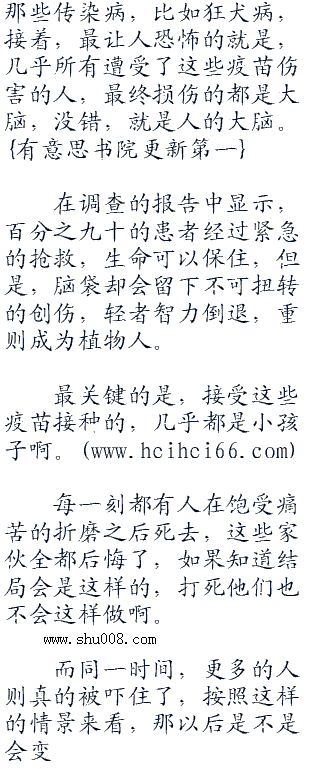 那些传染病，比如狂犬病，
接着，最让人恐怖的就是，
几乎所有遭受了这些疫苗伤
害的人，最终损伤的都是大
脑，没错，就是人的大脑。
{有意思书院更新第一}
在调查的报告中显示，
百分之九十的患者经过紧急
的抢救，生命可以保住，但
是，脑袋却会留下不可扭转
的创伤，轻者智力倒退，重
则成为植物人。
最关键的是，接受这些
疫苗接种的，几乎都是小孩
子啊。(www.hcihci66.com)
每一刻都有人在饱受痛
苦的折磨之后死去，这些家
伙全都后悔了，如果知道结
局会是这样的，打死他们也
不会这样做啊。
www.shu008.com
而同一时间，更多的人
则真的被吓住了，按照这样
的情景来看，那以后是不是
会变